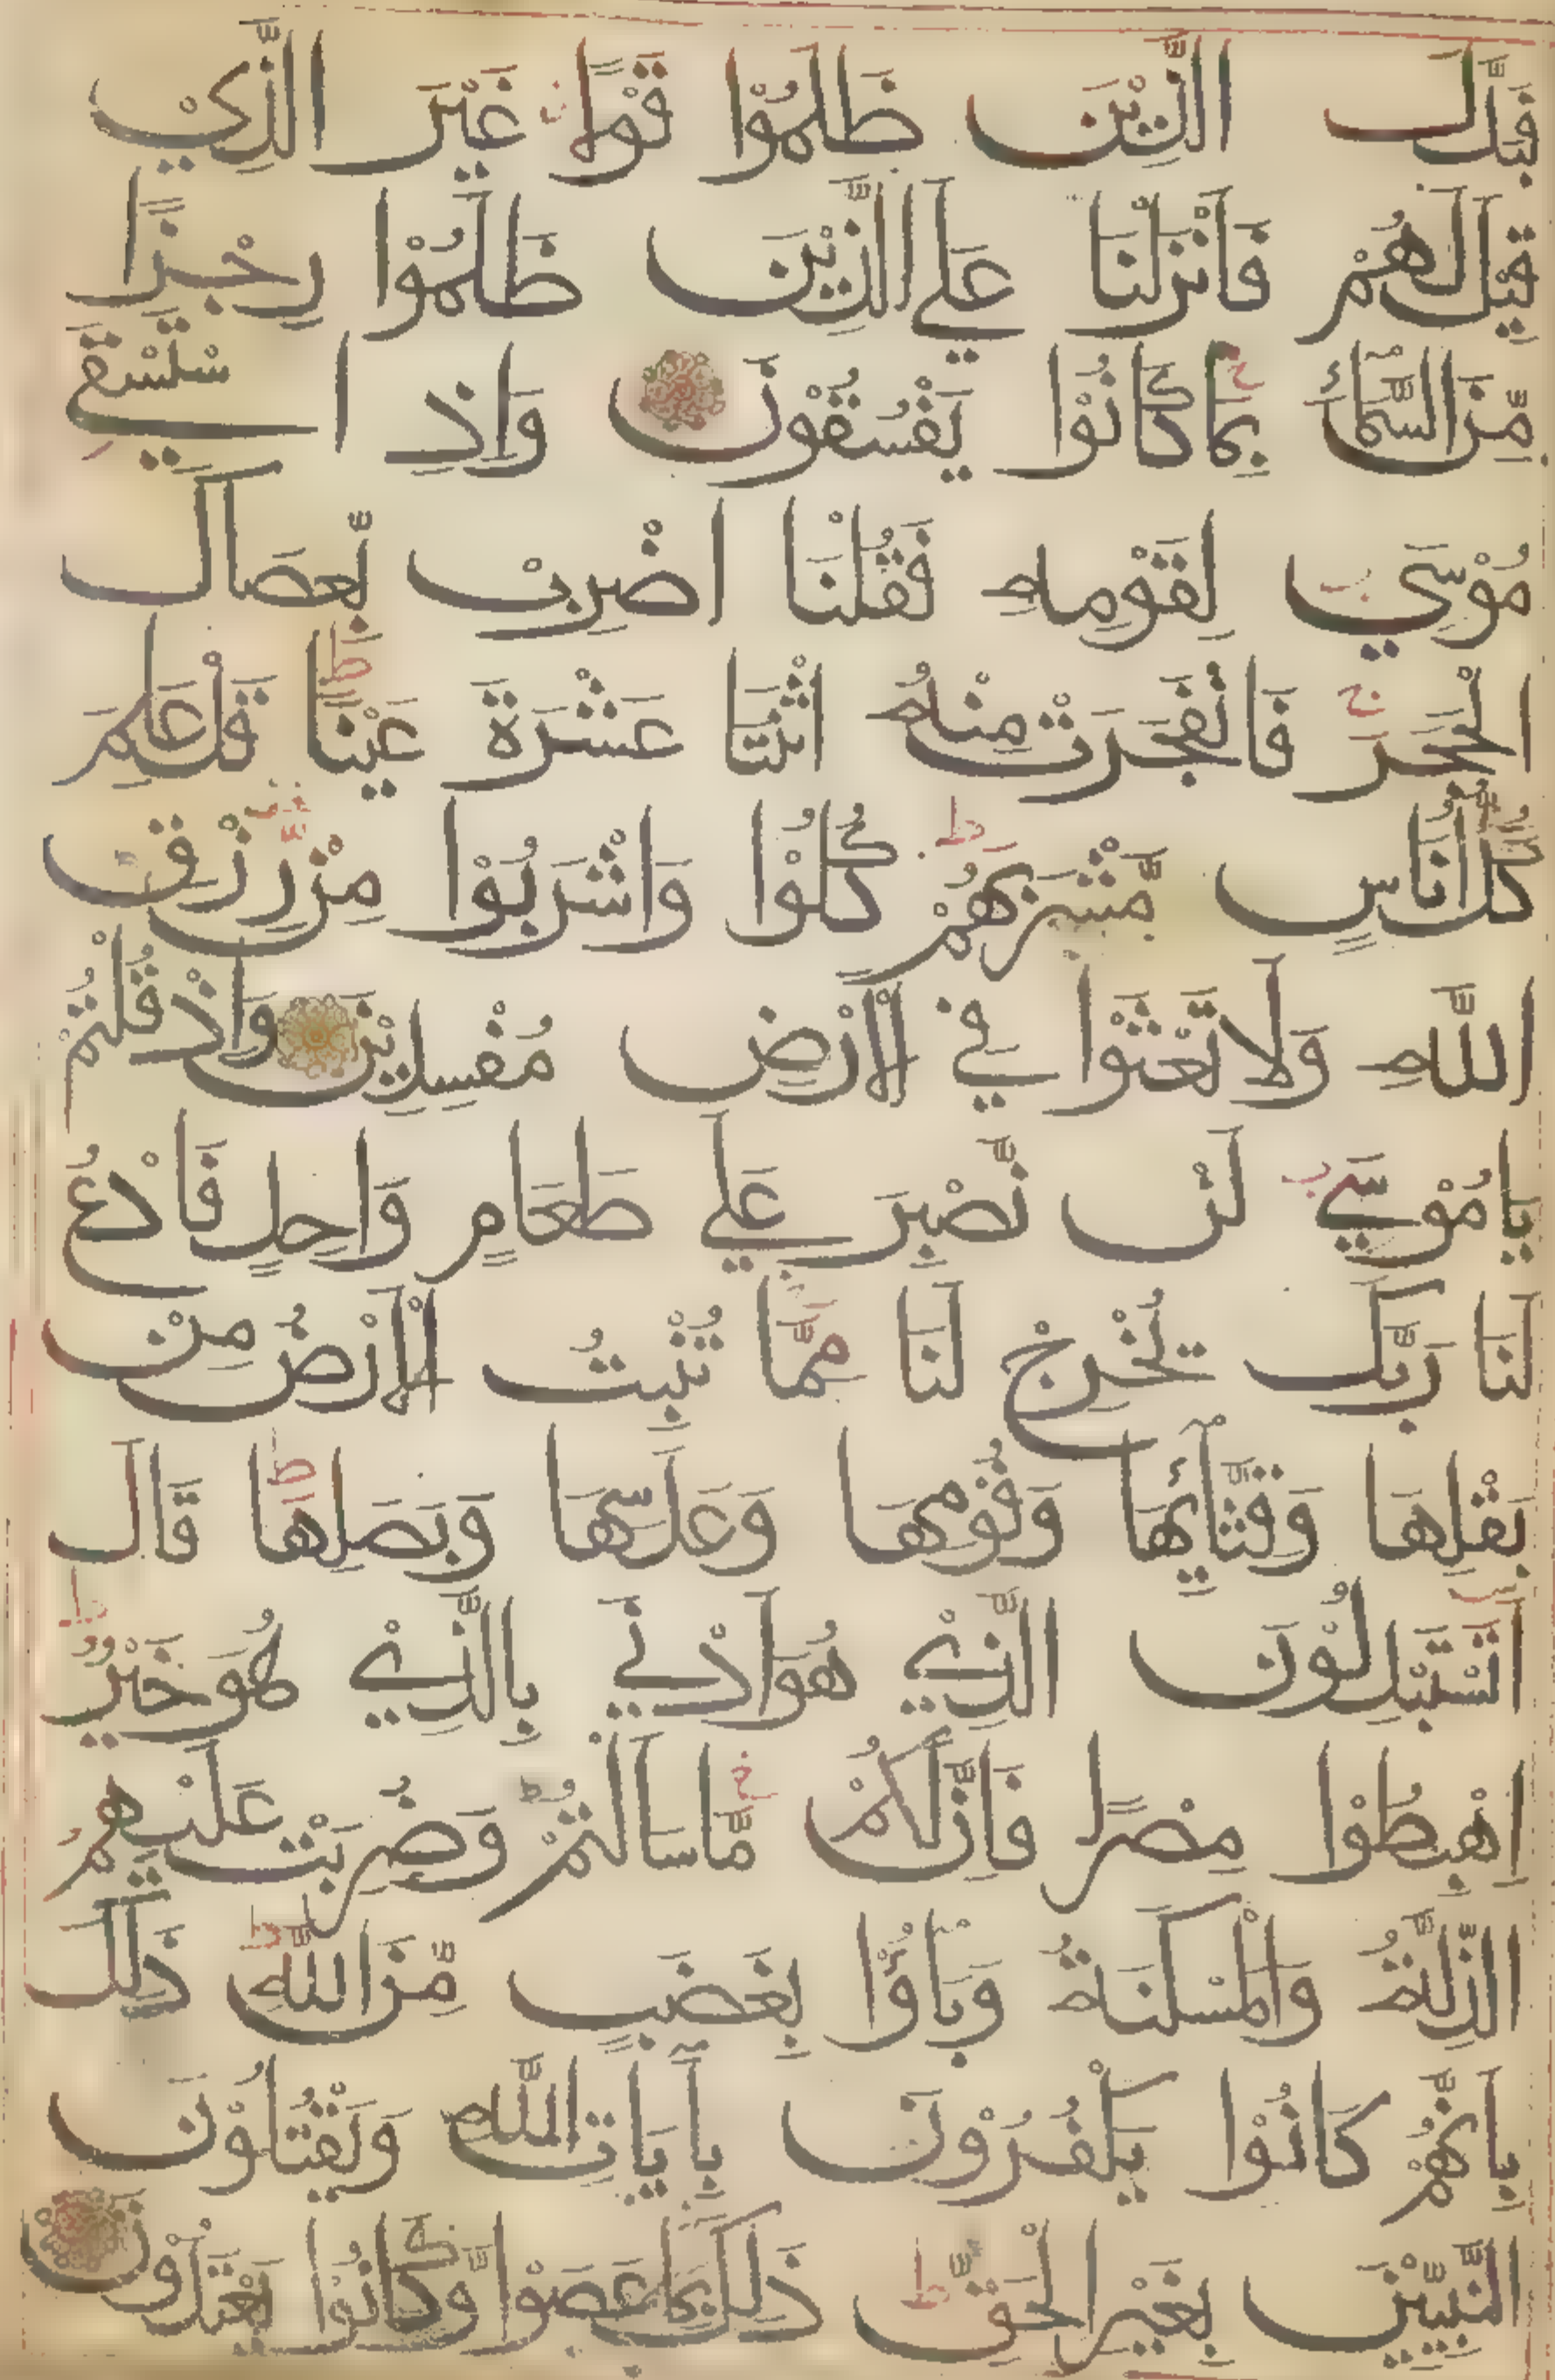 فَبَدَّلَ الَّذِيْنَ ظَلَمُوْا قَوْلًا غَيْرَ الَّذِيْ
قِيْلَ لَهُمْ فَاَنْزَلْنَا عَلَي الَّذِيْنَ ظَلَمُوْا رِجْزًا
مِّنَ السَّمَآءِ بِمَا كَانُوْا يَفْسُقُوْنَ وَاِذِ اسْتَسْقٰي
مُوْسٰي لِقَوْمِهٖ فَقُلْنَا اضْرِبْ بِّعَصَاكَ
الْحَجَرَ فَانْفَجَرَتْ مِنْهُ اثْنَتَا عَشْرَةَ عَيْنًا قَدْ عَلِمَ
كُلُّ اُنَاسٍ مَّشْرَبَهُمْ كُلُوْا وَاشْرَبُوْا مِنْ رِّزْقِ
اللّٰهِ وَلَا تَعْثَوْا فِي الْاَرْضِ مُفْسِدِيْنَ وَاِذْ قُلْتُمْ
يَامُوْسٰي لَنْ نَّصْبِرَ عَلٰي طَعَامٍ وَاحِدٍ فَادْعُ
لَنَا رَبَّكَ يُخْرِجْ لَنَا مِمَّا تُنْبِتُ الْاَرْضُ مِنْ
بَقْلِهَا وَقِثَّآئِهَا وَفُوْمِهَا وَعَدَسِهَا وَبَصَلِهَا قَالَ
اَتَسْتَبْدِلُوْنَ الَّذِيْ هُوَ اَدْنٰي بِالَّذِيْ هُوَ خَيْرٌ
اِهْبِطُوْا مِصْرًا فَاِنَّ لَكُمْ مَّا سَاَلْتُمْ وَضُرِبَتْ عَلَيْهِمُ
الذِّلَّةُ وَالْمَسْكَنَةُ وَبَاؤُا بِغَضَبٍ مِّنَ اللّٰهِ ذٰلِكَ
بِاَنَّهُمْ كَانُوْا يَكْفُرُوْنَ بِآيَاتِ اللّٰهِ وَيَقْتُلُوْنَ
النَّبِيّٖيْنَ بِغَيْرِ الْحَقِّ ذٰلِكَ بِمَا عَصَوْا وَّكَانُوْا يَعْتَدُوْنَ